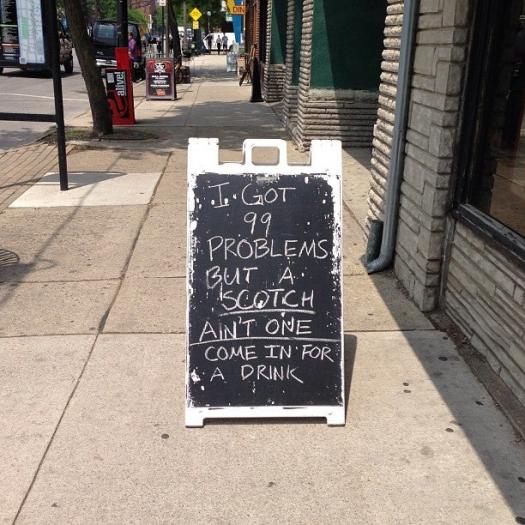 I GOT
99
PROBLEMS
BUT A
SCOTCH
AIN'T ONE
COME IN FOR
A DRINK
alive!
DIN